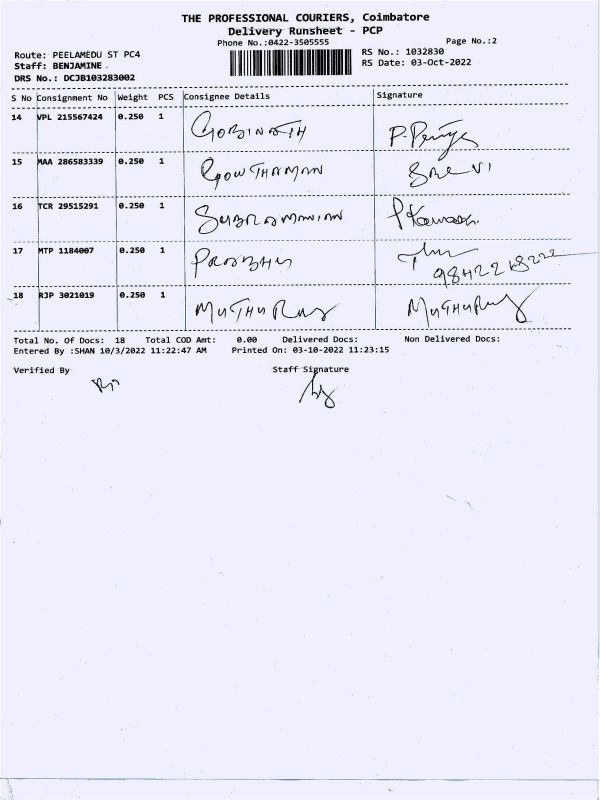 THE PROFESSIONAL COURIERS, Coimbatore
Delivery Runsheet - PCP
Phone No.:0422-3505555 Page No.:2
Route: PEELAMEDU ST PC4 RS No.: 1032830
Staff: BENJAMINE . RS Date: 03-Oct-2022
DRS No.: DCJB103283002
S No Consignment No Weight PCS Consignee Details Signature
14 VPL 215567424 0.250 1 GOBINATH
15 MAA 286583339 0.250 1 GOWTHAMAN
16 TCR 29515291 0.250 1 SUBRAMANIAN
17 MTP 1184007 0.250 1 PRABHU
18 RJP 3021019 0.250 1 MUTHURAJ MUTHURAJ
Total No. Of Docs: 18 Total COD Amt: 0.00 Delivered Docs: Non Delivered Docs:
Entered By :SHAN 10/3/2022 11:22:47 AM Printed On: 03-10-2022 11:23:15
Verified By Staff Signature